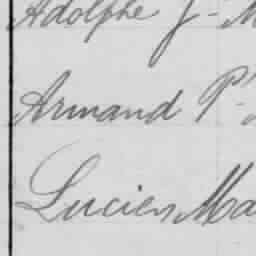 Adolphe J. M
Armand P.
Lucien Ma